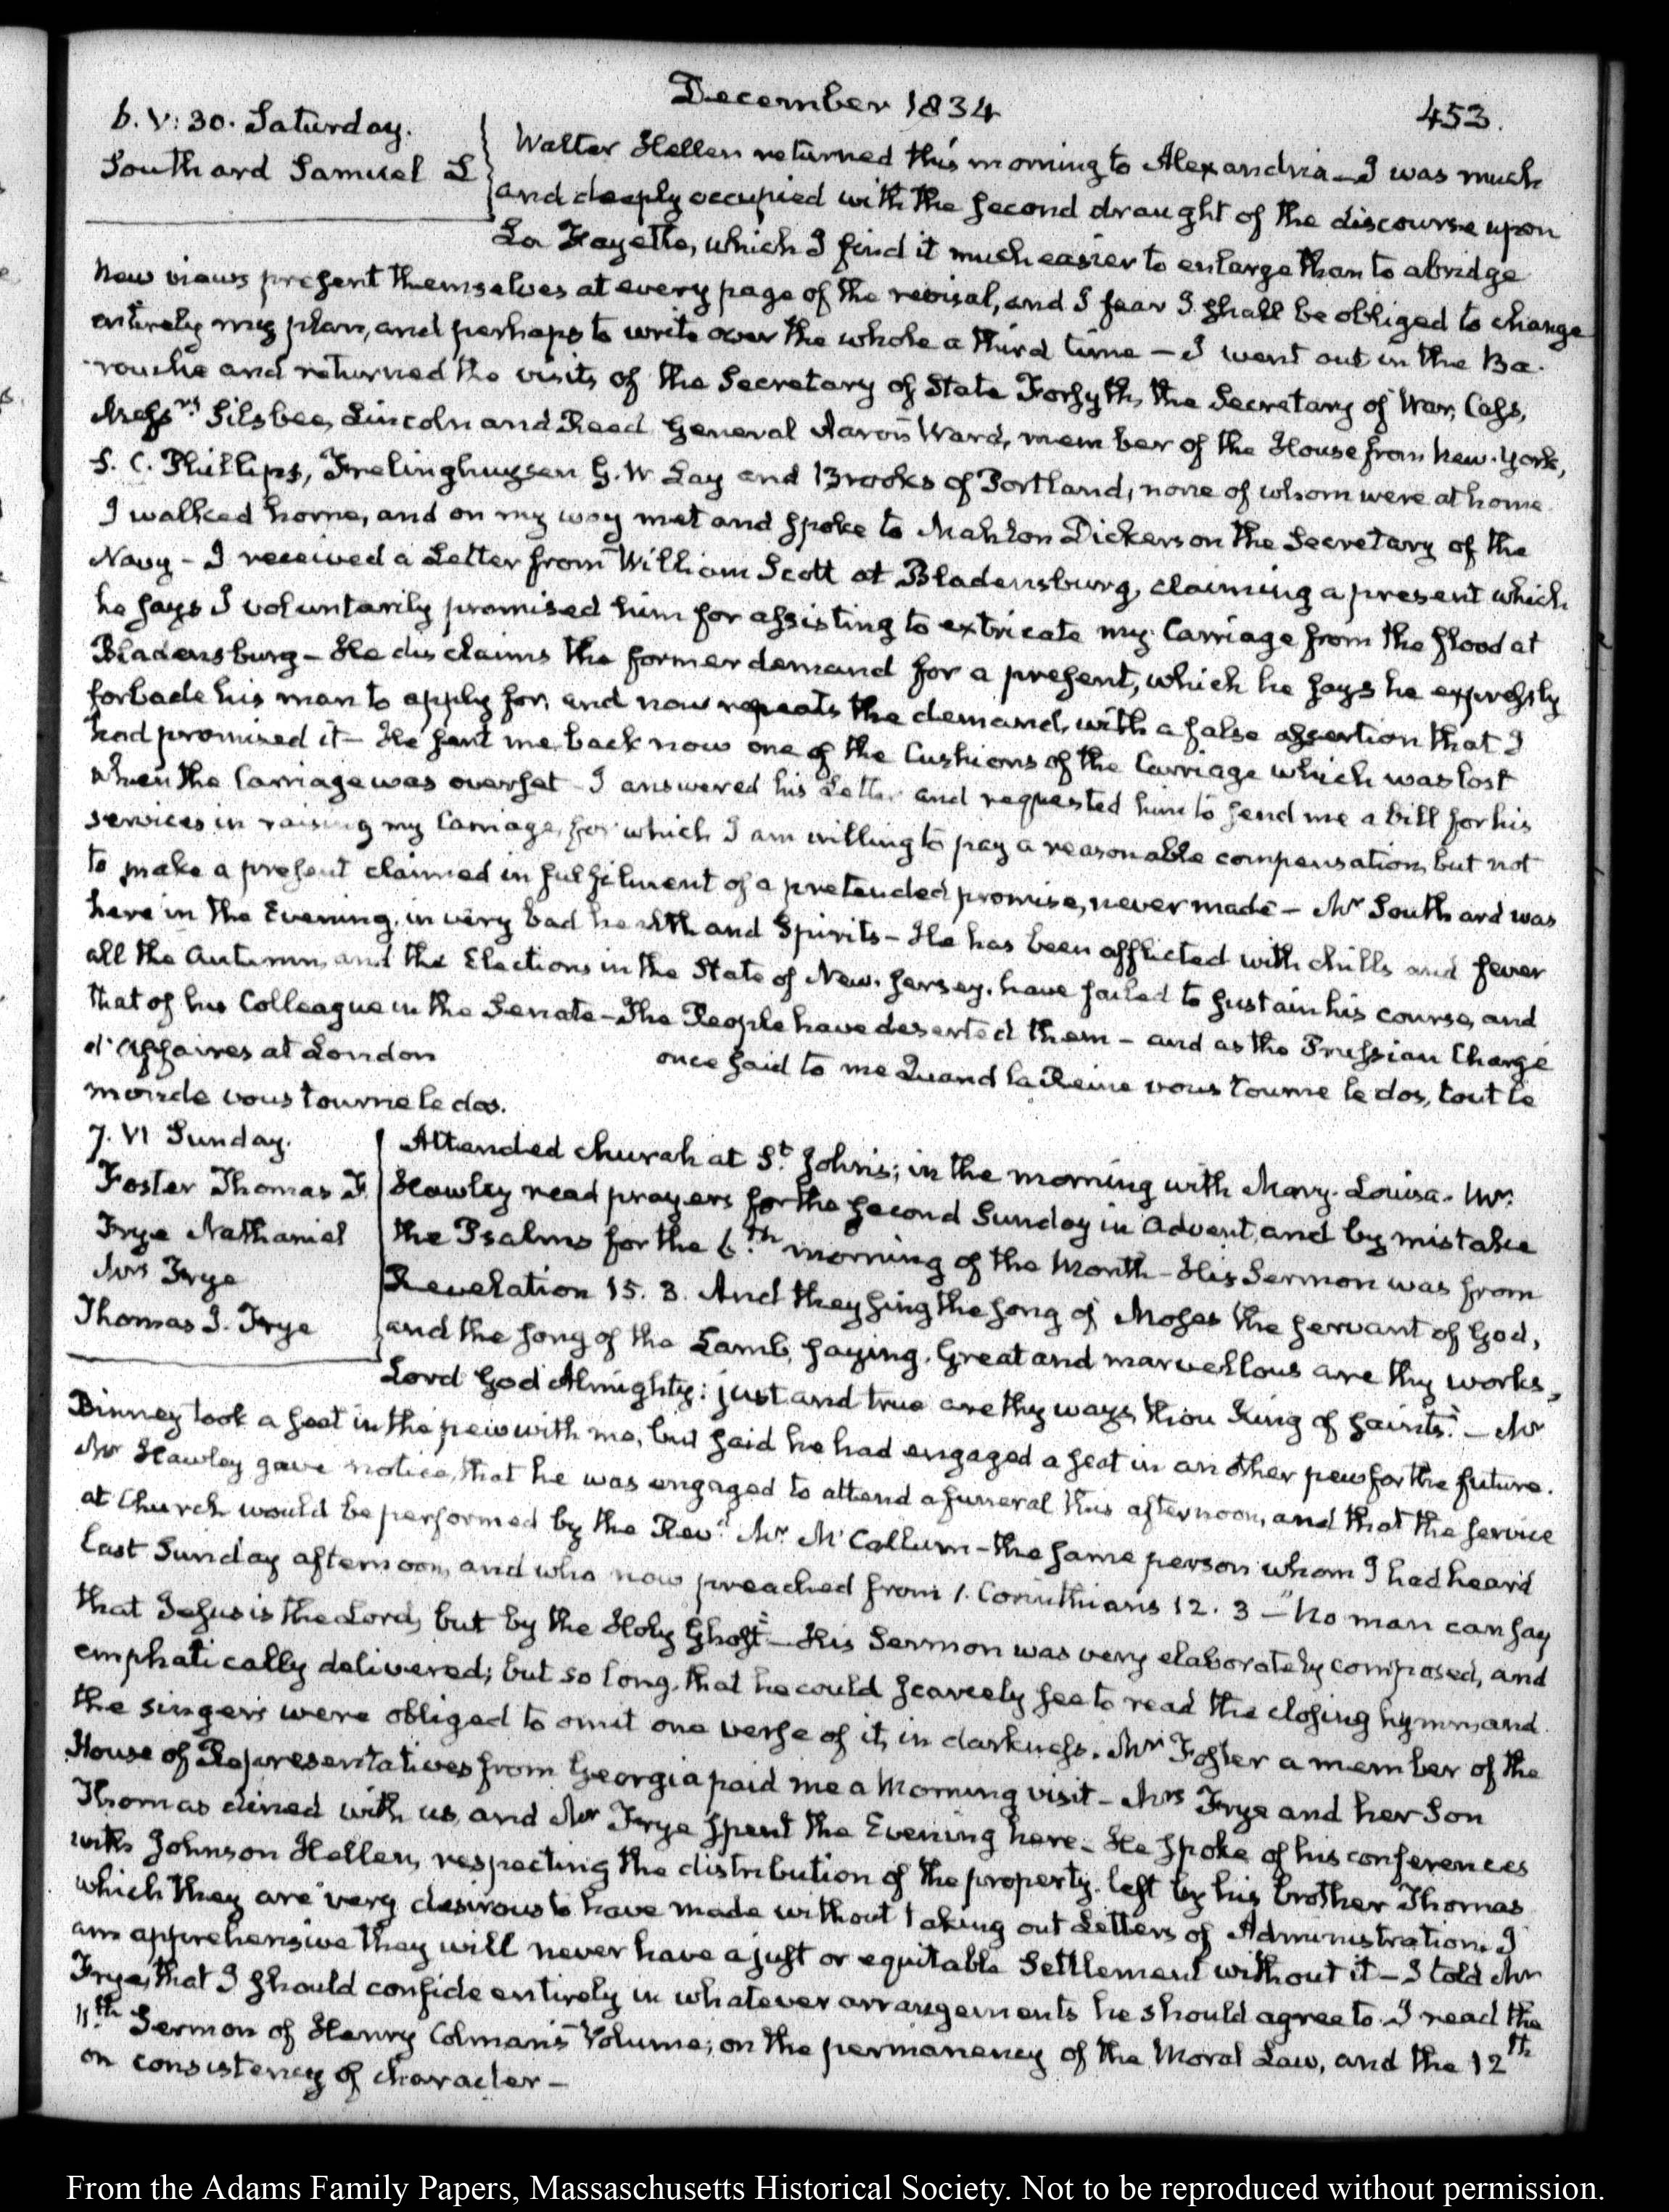 December 1834
453.
6. V: 30. Saturday.
Southard Samuel L
Walter Hellen returned this morning to Alexandria — I was much
and deeply occupied with the second draught of the discourse upon
La Fayette, which I find it much easier to enlarge than to abridge
New views present themselves at every page of the revisal, and I fear I shall be obliged to change
entirely my plan, and perhaps to write over the whole a third time — I went out in the Ba-
-rouche and returned the visits of the Secretary of State Forsyth, the Secretary of War, Cass,
Messrs. Silsbee, Lincoln and Reed General Aaron Ward, member of the House from New-York,
S. C. Phillips, Frelinghuysen G. W Lay and Brooks of Portland, none of whom were at home.
I walked home, and on my way met and spoke to Mahlon Dickerson the Secretary of the
Navy - I received a Letter from William Scott at Bladensburg, claiming a present which
he says I voluntarily promised him for assisting to extricate my Carriage from the flood at
Bladensburg - He disclaims the former demand for a present, which he says he expressly
forbade his man to apply for, and now repeats the demand, with a false assertion that I
had promised it — He sent me back now one of the Cushions of the Carriage which was lost
when the Carriage was overset - I answered his Letter and requested him to send me a bill for his
services in raising my Carriage, for which I am willing to pay a reasonable compensation, but not
to make a present claimed in fulfilment of a pretended promise, never made — Mr Southard was
here in the Evening, in very bad health and Spirits — He has been afflicted with chills and fever
all the Autumn, and the Elections in the State of New-Jersey, have failed to sustain his course, and
that of his Colleague in the Senate — The People have deserted them — and as the Prussian Chargé
d'Affaires at London once said to me Quand la Reine vous tourne le dos, tout le
monde vous tourne le dos.
7. VI Sunday.
Foster Thomas F
Frye Nathaniel
Mrs Frye
Thomas J. Frye
Attended church at St. John's; in the morning with Mary-Louisa. Mr.
Hawley read prayers for the second Sunday in Advent, and by mistake
the Psalms for the 6.th morning of the Month — His Sermon was from
Revelation 15. 3. And they sing the song of Moses the servant of God,
and the song of the Lamb, saying, Great and marvellous are thy works,
Lord God Almighty: just and true are thy ways, thou King of saints." — Mr
Binney took a seat in the pew with me, but said he had engaged a seat in another pew for the future.
Mr Hawley gave notice, that he was engaged to attend a funeral this afternoon, and that the service
at Church would be performed by the Rev.d Mr. McCallum — the same person whom I had heard
last Sunday afternoon, and who now preached from 1. Corinthians 12. 3 — "No man can say
that Jesus is the Lord, but by the Holy Ghost" — His Sermon was very elaborately composed, and
emphatically delivered; but so long, that he could scarcely see to read the closing hymn, and
the singers were obliged to omit one verse of it, in darkness. Mr Foster a member of the
House of Representatives from Georgia paid me a Morning visit — Mrs Frye and her Son
Thomas dined with us, and Mr Frye spent the Evening here — He spoke of his conferences
with Johnson Hellen, respecting the distribution of the property left by his brother Thomas
which they are very desirous to have made without taking out Letters of Administration. I
am apprehensive they will never have a just or equitable Settlement without it — I told Mr
Frye, that I should confide entirely in whatever arrangements he should agree to. I read the
11.th Sermon of Henry Colman's Volume; on the permanency of the Moral Law, and the 12th
on consistency of character —
From the Adams Family Papers, Massachusetts Historical Society. Not to be reproduced without permission.